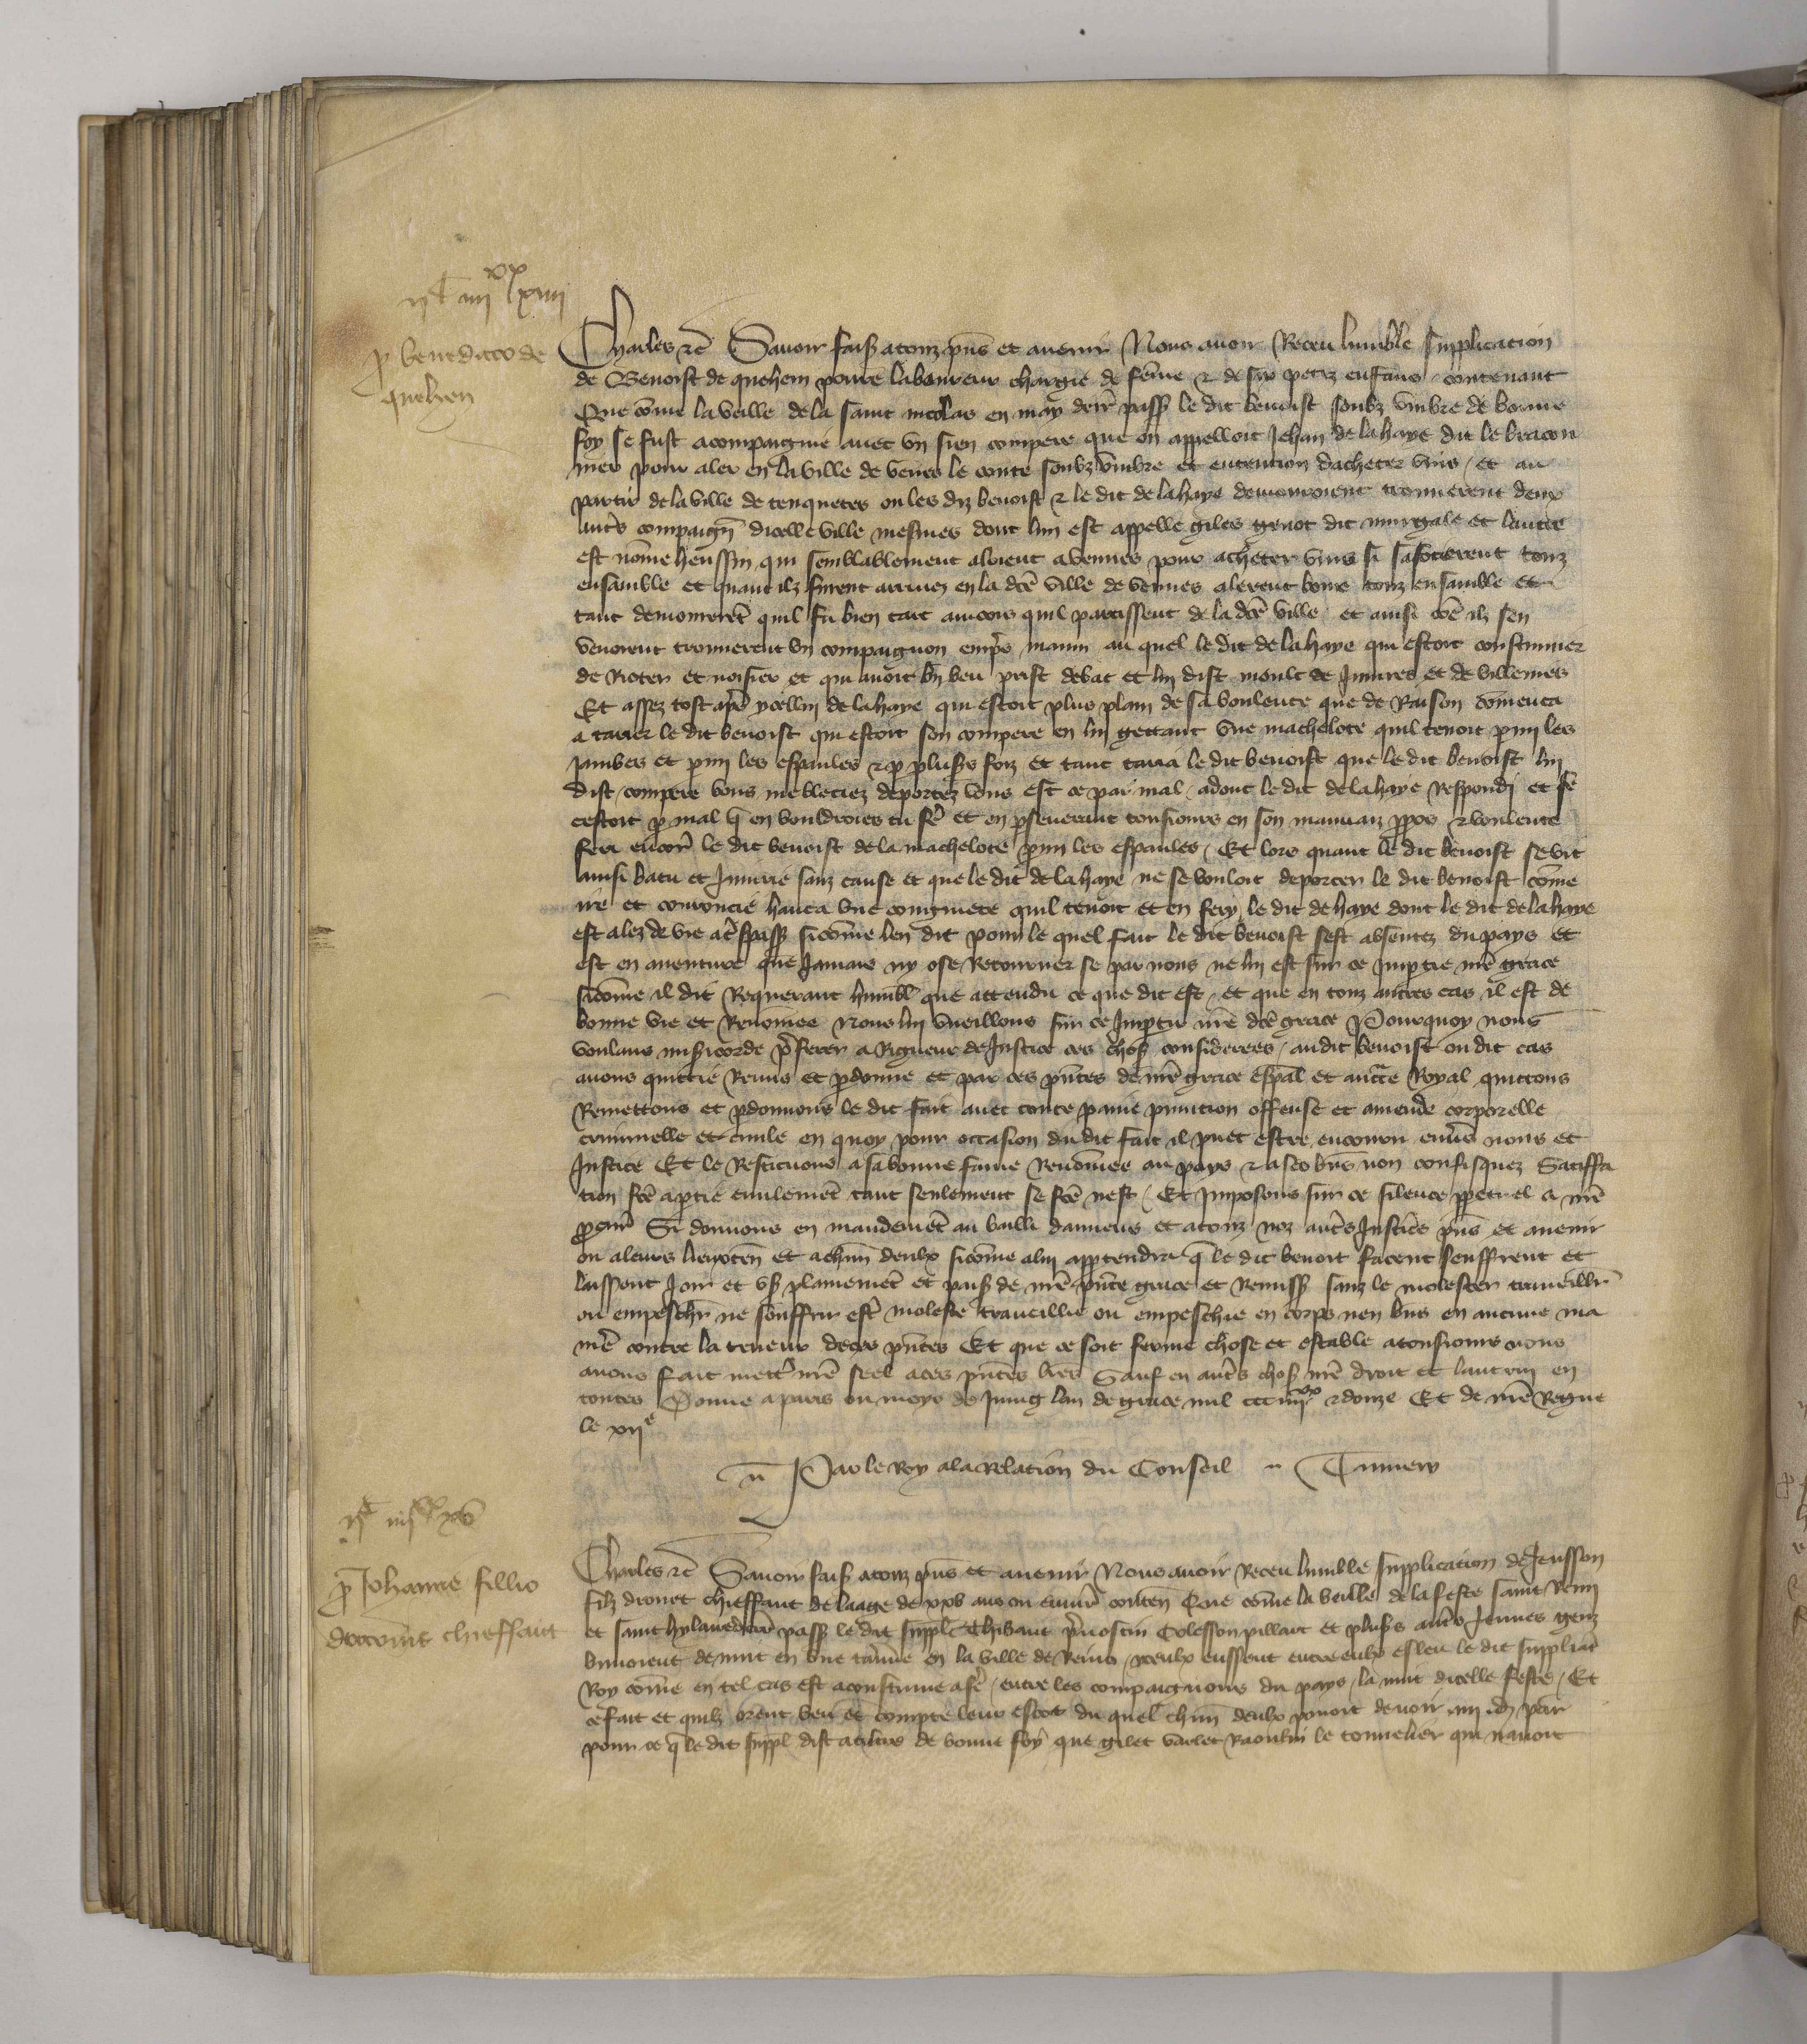 iic iiiixx xiiii
p benedicto de
quehen
Charles etc Savoir faiss a touz pns et avenir Nous avoir Receu lumble supplicacion
de Benoist de quehem povre laboureur chargie de feme et de six petiz enffans contenant
Que come la veille de la saint nicolas en may derr pass le dit benoist soubz umbre de bonne
foy se fust acompaignie avec un sien compere que on appelloit Jehan de la haye dit le bracon
nier pour aler en la ville de le conte soubz umbre et entencion dacheter vins / et au
partir de la ville de tenquetes ou les diz benoist et le dit de la haye demouroient trouverent deux
autrs compaigns dicelle ville mesmes dont lun est appelle giles genot dit murgale et lautre
est nomme heussin qui semblablement aloient a vennes pour acheter vins si sasocierent touz
ensamble et quant ilz furent arrivez en la dce ville de vennes alerent boire touz ensamble et
tant demourert quil fu bien tart aincois quil partissent de la dce ville et ainsi coe ilz sen
venoient trouverent un compaignon empres manin au quel le dit de la haye qui estoit coustumier
de Rioter et noisier et qui avoit bn beu prist debat et lui dist moult de Injures et de villenies
Et assez tost apres ycellui de la haye qui estoit plus plain de sa voulente que de Raison comenca
a tarier le dit benoist qui estoit son compere en lui gettant une machelote quil tenoit pmi les
jambes et pmi les espaules et p pluss foiz et tant taria le dit benoist que le dit benoist lui
dist / compere vous me bleciez deportez vous est ce par mal / adont le dit de la haye Respondi et se
cestoit p mal q en vouldroies tu fe et en pseverant tousiours en son mauvaiz ppos et voulente
feri encor le dit benoist de la machelote pmi les espaules / Et lors quant le dit benoist se vit
ainsi batu et Injurie sanz cause et que le dit de la haye ne se vouloit deporter le dit benoist come
ire et couroucie hauca une coingniete quil tenoit et en fery le dit de haye dont le dit de la haye
est alez de vie a trespass sicome len dit pour le quel fait le dit benoist sest absentez du pays et
est en aventure que Jamais ny ose Retourner se par nous ne lui est sur ce Impartie nre grace
sicome il dit Requerant humbl que attendu ce que dit est / et que en touz autres cas il est de
bonne vie et Renomee Nous lui vueillons sur ce Impartir nre dce grace Pourquoy nous
voulans misicorde prferer a Rigueur de Justice ces choss considerees / audit benoist ou dit cas
avons quittie Remis et pdonne et par ces pntes de nre grace espal et aucte Royal quittons
Remettons et pdonnons le dit fait avec toute paine punicion offense et amende corporelle
criminelle et civile en quoy pour occasion du dit fait il puet estre encouru envrs nous et
Justice Et le Restituons a sa bonne fame Renomee au pays et a ses bns non confisquez Satiffa
tion fce a ptie civilemet tant seulement se fce nest / Et Imposons sur ce silence ppetuel a nre
pcur Si donnons en mandemet au bailli damiens et a touz noz autrs Justices pns et avenir
ou a leurs lieuxten et a chun deulx sicome a lui apptendra q le dit benoit facent seuffrent et
laissent Joir et us plainemet et paiss de nre pnte grace et Remiss sanz le molester traveillr
ou empeschr ne souffrir estr moleste traveillie ou empeschie en corps nen bns en aucune ma
nre contre la teneur de ces pntes Et que ce soit ferme chose et estable a tousiours nous
avons fait mettr nre seel a ces pntes lres Sauf en autrs choss nre droit et lautrui en
toutes Donne a paris ou moys de Juing lan de grace mil ccc iiiixx et douze Et de nre Regne
le xiie
Par le Roy a la Relacion du Conseil
iic iiiixx xv
p Johanne fillio
chieffaut
Charles etc Savoir faiss a touz pns et avenir Nous avoir Receu lumble supplicacion de Jeusson
filz drouet chieffaut de laage de xxv ans ou envir conten Que come la veille de la feste saint Remi
et saint hylaire derr pass le dit suppl Thibaut prevostin Colesson pillart et pluss autrs Jeunes genz
buvoient de nuit en une taverne en la ville de Reins yceulx eussent entre eulx esleu le dit suppliat
Roy come en tel cas est acoustume a fe / entre les compaignons du pays / la nuit dicelle feste / Et
ce fait et quilz orent beu et compte leur escot du quel chun deulx povoit devoir iiii d par
pour ce q le dit suppl dist a de bonne foy que gilet varlet Raoulin le tonnelier qui navoit